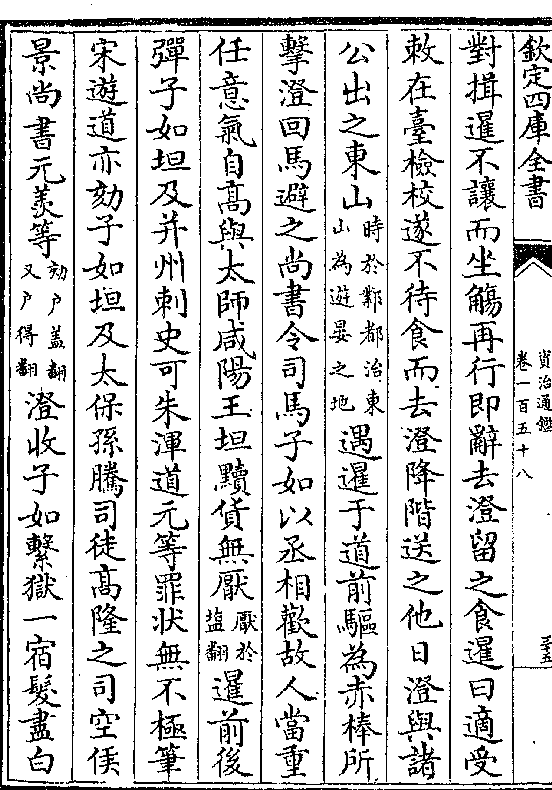 欽定四庫全書
資治通鑑
卷一百五十八
二十五
對揖暹不讓而坐觴再行即辭去澄留之食暹曰適受
敕在臺檢校遂不待食而去澄降階送之他日澄與諸
公出之東山時於鄴都治東山為遊宴之地遇暹于道前驅為赤棒所
擊澄回馬避之尚書令司馬子如以丞相歡故人當重
任意氣自髙與太師咸陽王坦黷貨無厭厭於鹽翻暹前後
彈子如坦及并州刺史可朱渾道元等罪狀無不極筆
宋遊道亦劾子如坦及太保孫騰司徒髙隆之司空侯
景尚書元羨等劾戶蓋翻又戶得翻澄收子如繫獄一宿髮盡白